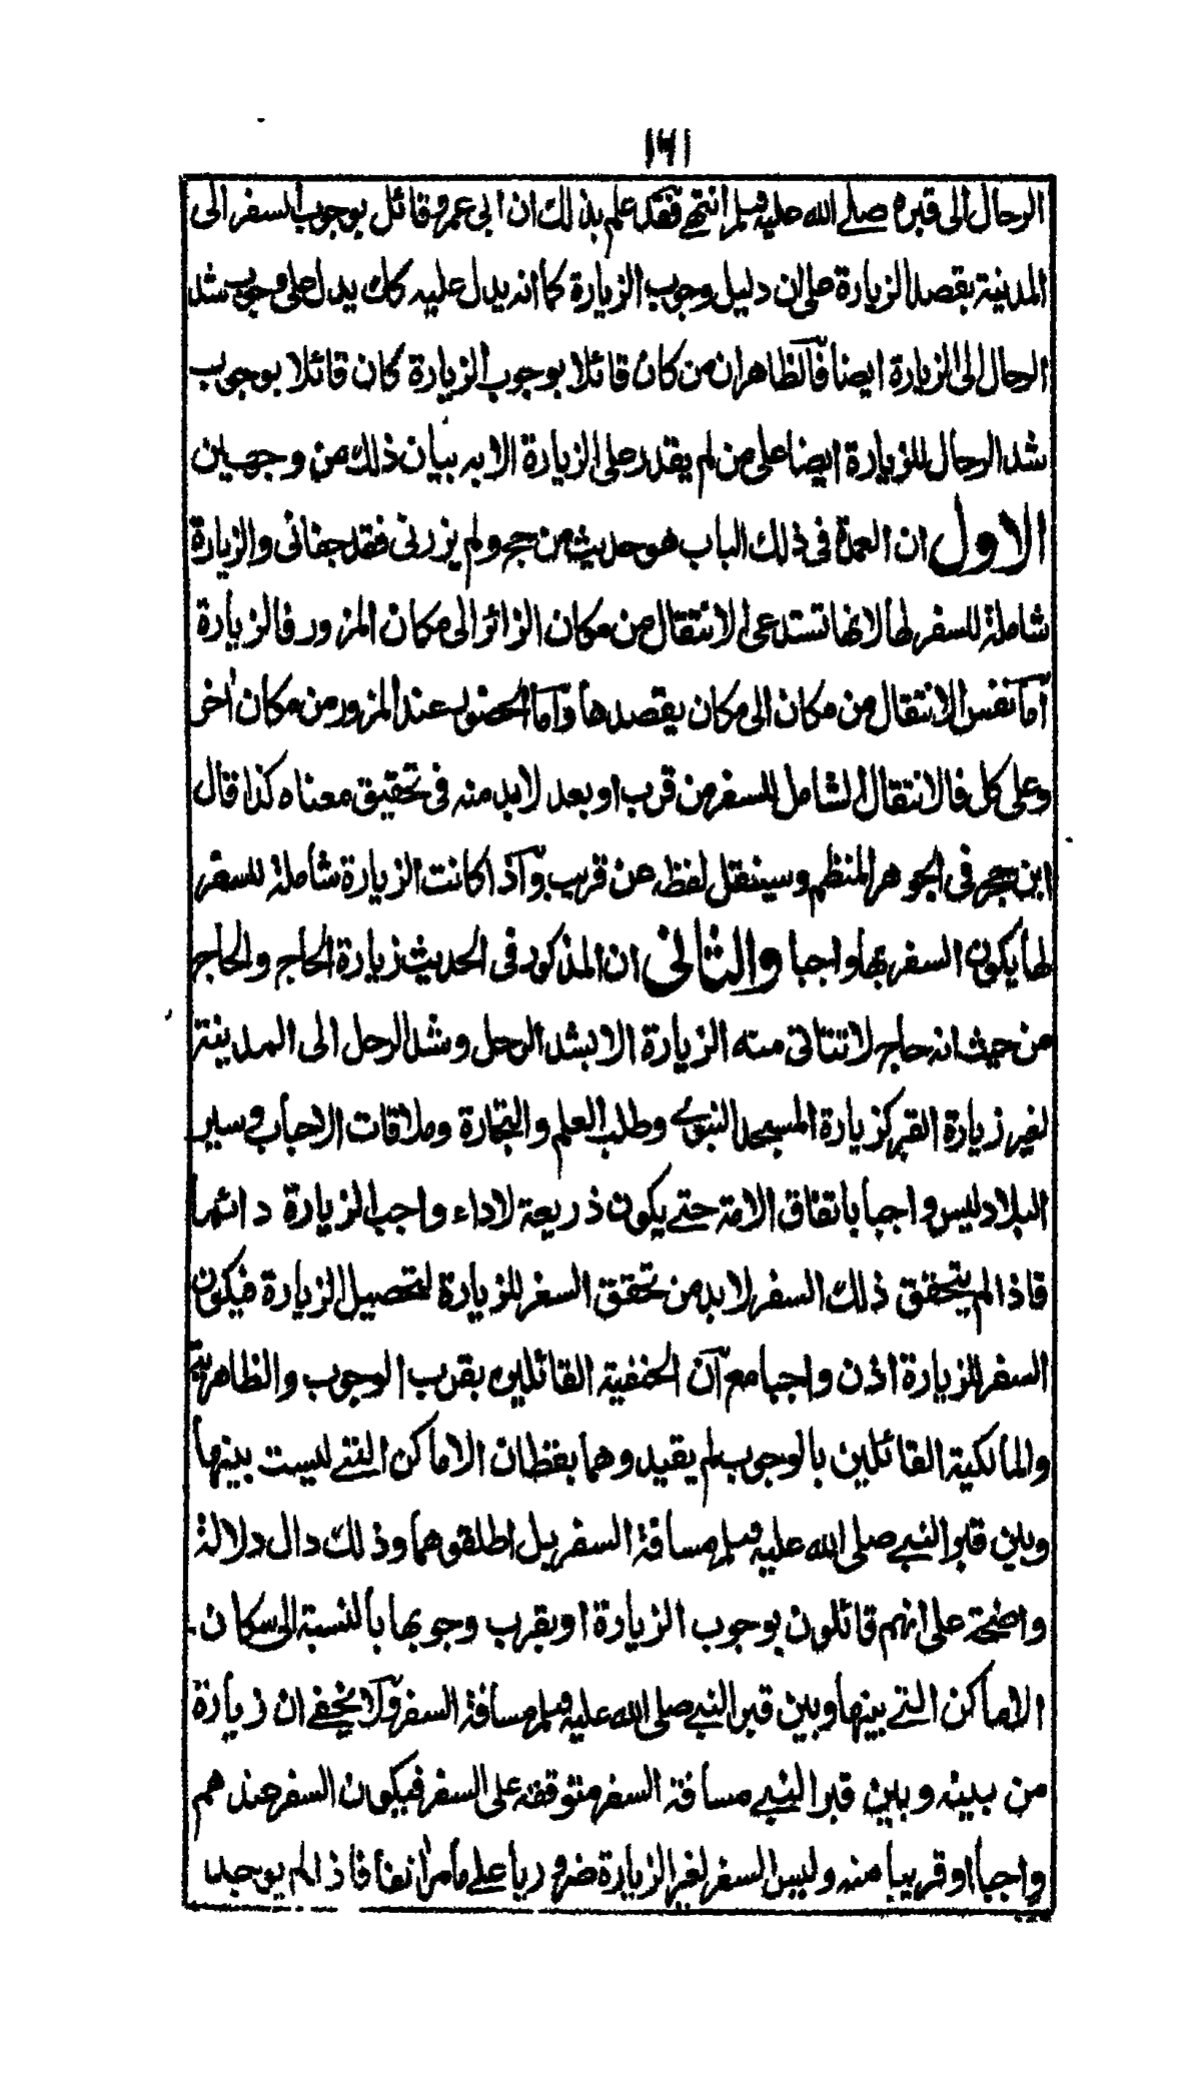 ١٦١
الرحال الى قبره صلے الله عليه وسلم انتهى فقد علم بذلك ان ابى عمر وقائل بوجوب السفر الى
المدينة بقصد الزيارة على ان دليل وجوب الزيارة كما انه يدل عليه كك يدل على وجوب شد
الرحال الى الزيارة ايضا فالظاهر ان من كان قائلا بوجوب الزيارة كان قائلا بوجوب
شد الرحال للزيارة ايضا على من لم يقدر على الزيارة الا به بيان ذلك من وجهين
الاول ان العمدة فى ذلك الباب هو حديث من حج ولم يزرنى فقد جفانى والزيارة
شاملة للسفر لها لانها تستدعى الانتقال من مكان الزائر الى مكان المزور فالزيارة
اما نفس الانتقال من مكان الى مكان يقصدها واما الحضور عند المزور من مكان اخر
وعلى كل فالانتقال الشامل للسفر من قرب او بعد لا بد منه فى تحقيق معناه كذا قال
ابن حجر فى الجوهر المنظم وسينقل لفظه عن قريب واذا كانت الزيارة شاملة للسفر
لها يكون السفر بها واجبا والثانى ان المذكور فى الحديث زيارة الحاج والحاج
من حيث انه حاج لا تتاتى منه الزيارة الا بشد الرحل وشد الرحل الى المدينة
لغير زيارة القبر كزيارة المسجد النبوے وطلب العلم والتجارة وملاقات الاحباب وسير
البلاد ليس واجبا باتفاق الامة حتے يكون ذريعة لاداء واجب الزيارة دائما
فاذا لم يتحقق ذلك السفر لا بد من تحقق السفر للزيارة لتحصيل الزيارة فيكون
السفر للزيارة اذن واجبا مع ان الحنفية القائلين بقرب الوجوب والظاهرية
والمالكية القائلين بالوجوب لم يقيدوهما بقطان الاماكن التے ليست بينها
وبين قبر النبے صلى الله عليه وسلم مسافة السفر بل اطلقوهما وذلك دال دلالة
واضحة على انهم قائلون بوجوب الزيارة او بقرب وجوبها بالنسبة الى سكان
الاماكن التے بينها وبين قبر النبے صلى الله عليه وسلم مسافة السفر ولا يخفے ان زيارة
من بينه وبين قبر النبے مسافة السفر متوقفة على السفر فيكون السفر عندهم
واجبا او قريبا منه وليس السفر لغير الزيارة ضروريا علے ما مر انفا فاذا لم يوجد